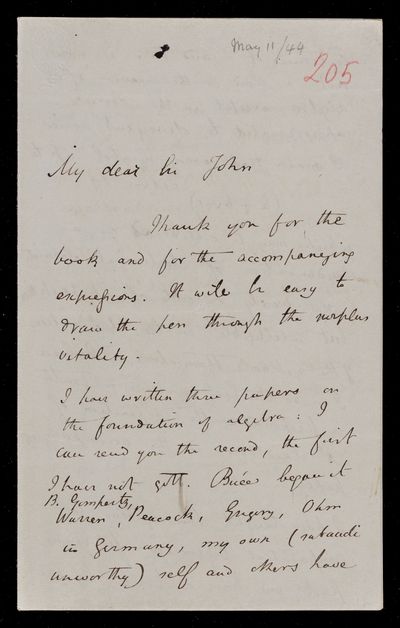 May 11/44
205
My dear Sir John
Thank you for the
book and for the accompanying
expressions. It will be easy to
draw the pen through the surplus
vitality.
I have written three papers on
the foundation of algebra: I
can send you the second, the first
I have not got. Buée began it
B. Gompertz,
Warren, Peacock, Gregory, Ohm
in Germany, my own (subaudi
unworthy) self and others have